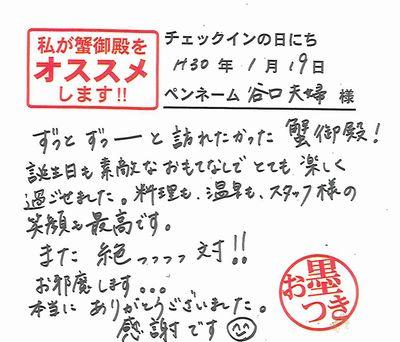 私が蟹御殿を
オススメ
します!!
チェックインの日にち
H30年1月19日
ペンネーム 谷口夫婦 様
ずっと ずっーと 訪れたかった 蟹御殿!
誕生日も素敵なおもてなしでとても楽しく
過ごせました。料理も、温泉も、スタッフ様の
笑顔も最高です。
また 絶っっっっ対!!
お邪魔します...
本当に ありがとうございました。
感謝です
お墨つき